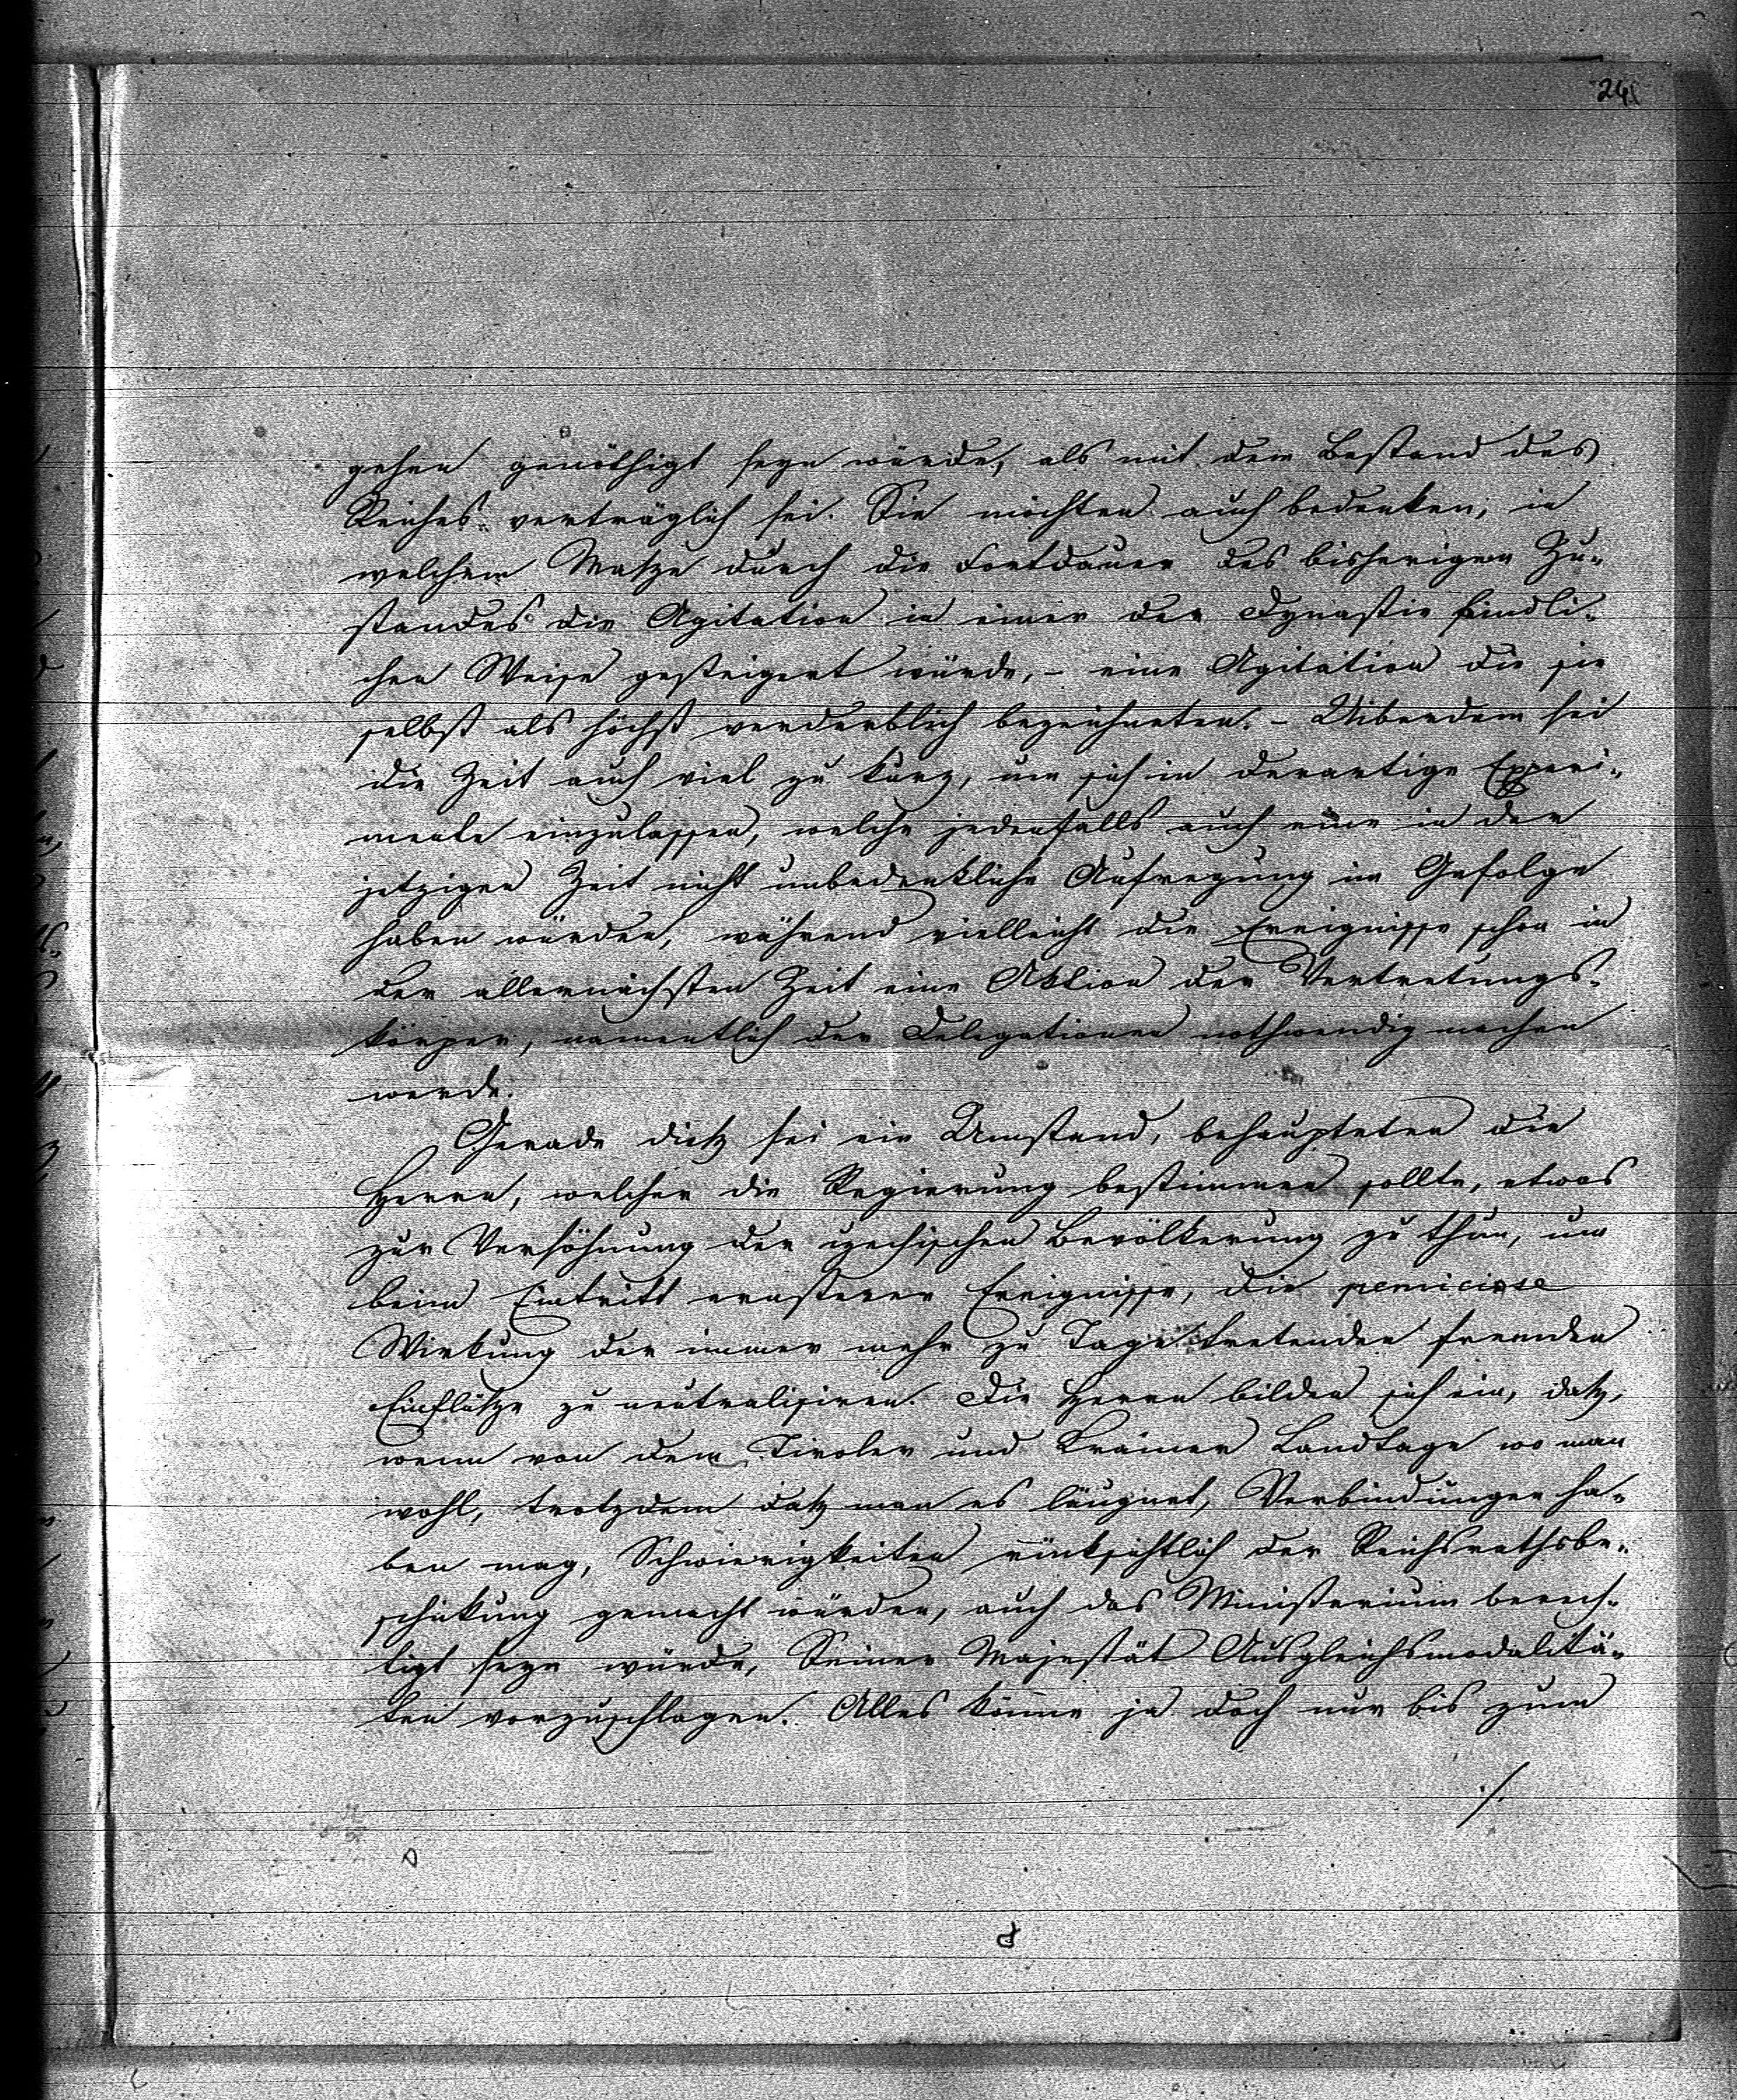 gehen genöthigt seyn würde, als mit dem Bestand des
Reiches verträglich sei. Sie möchten auch bedenken, in
welchem Masze durch die Fortdauer des bisherigen Zu-
standes die Agitation in einer der Dynastie feindli-
chen Weise gesteigert würde, - eine Agitation die sie
selbst als höchst verderblich bezeichneten. - Uiberdem sei
die Zeit auch viel zu kurz, um sich in derartige Experi-
mente einzulassen, welche jedenfalls auch eine in der
jetzigen Zeit nicht unbedenkliche Aufregung im Gefolge
haben würden, während vielleicht die Ereignisse schon in
der allernächsten Zeit eine Aktion der Vertretungs-
körper, namentlich der Delegationen nothwendig machen
werde.
Gerade dietz sei ein Umstand, behaupteten die
Herren, welcher die Regierung bestimmen sollte, etwas
zur Versöhnung der czechischen Bevölkerung zu thun, um
beim Eintritt ernsterer Ereignisse, die perniciose
Wirkung der immer mehr zu Tage tretenden fremden
Einflüsze zu neutralisiren. Die Herren bilden sich ein, dasz,
wenn von dem Tiroler und Krainer Landtage wo man
wohl, trotzdem dasz man es läugnet, Verbindungen ha-
ben mag, Schwierigkeiten rücksichtlich der Reichsrathsbe-
schickung gemacht würden, auch das Ministerium berech-
tigt seyn würde, Seiner Majestät Ausgleichsmodalitä-
ten vorzuschlagen. Alles könne ja doch nur bis zum
./.